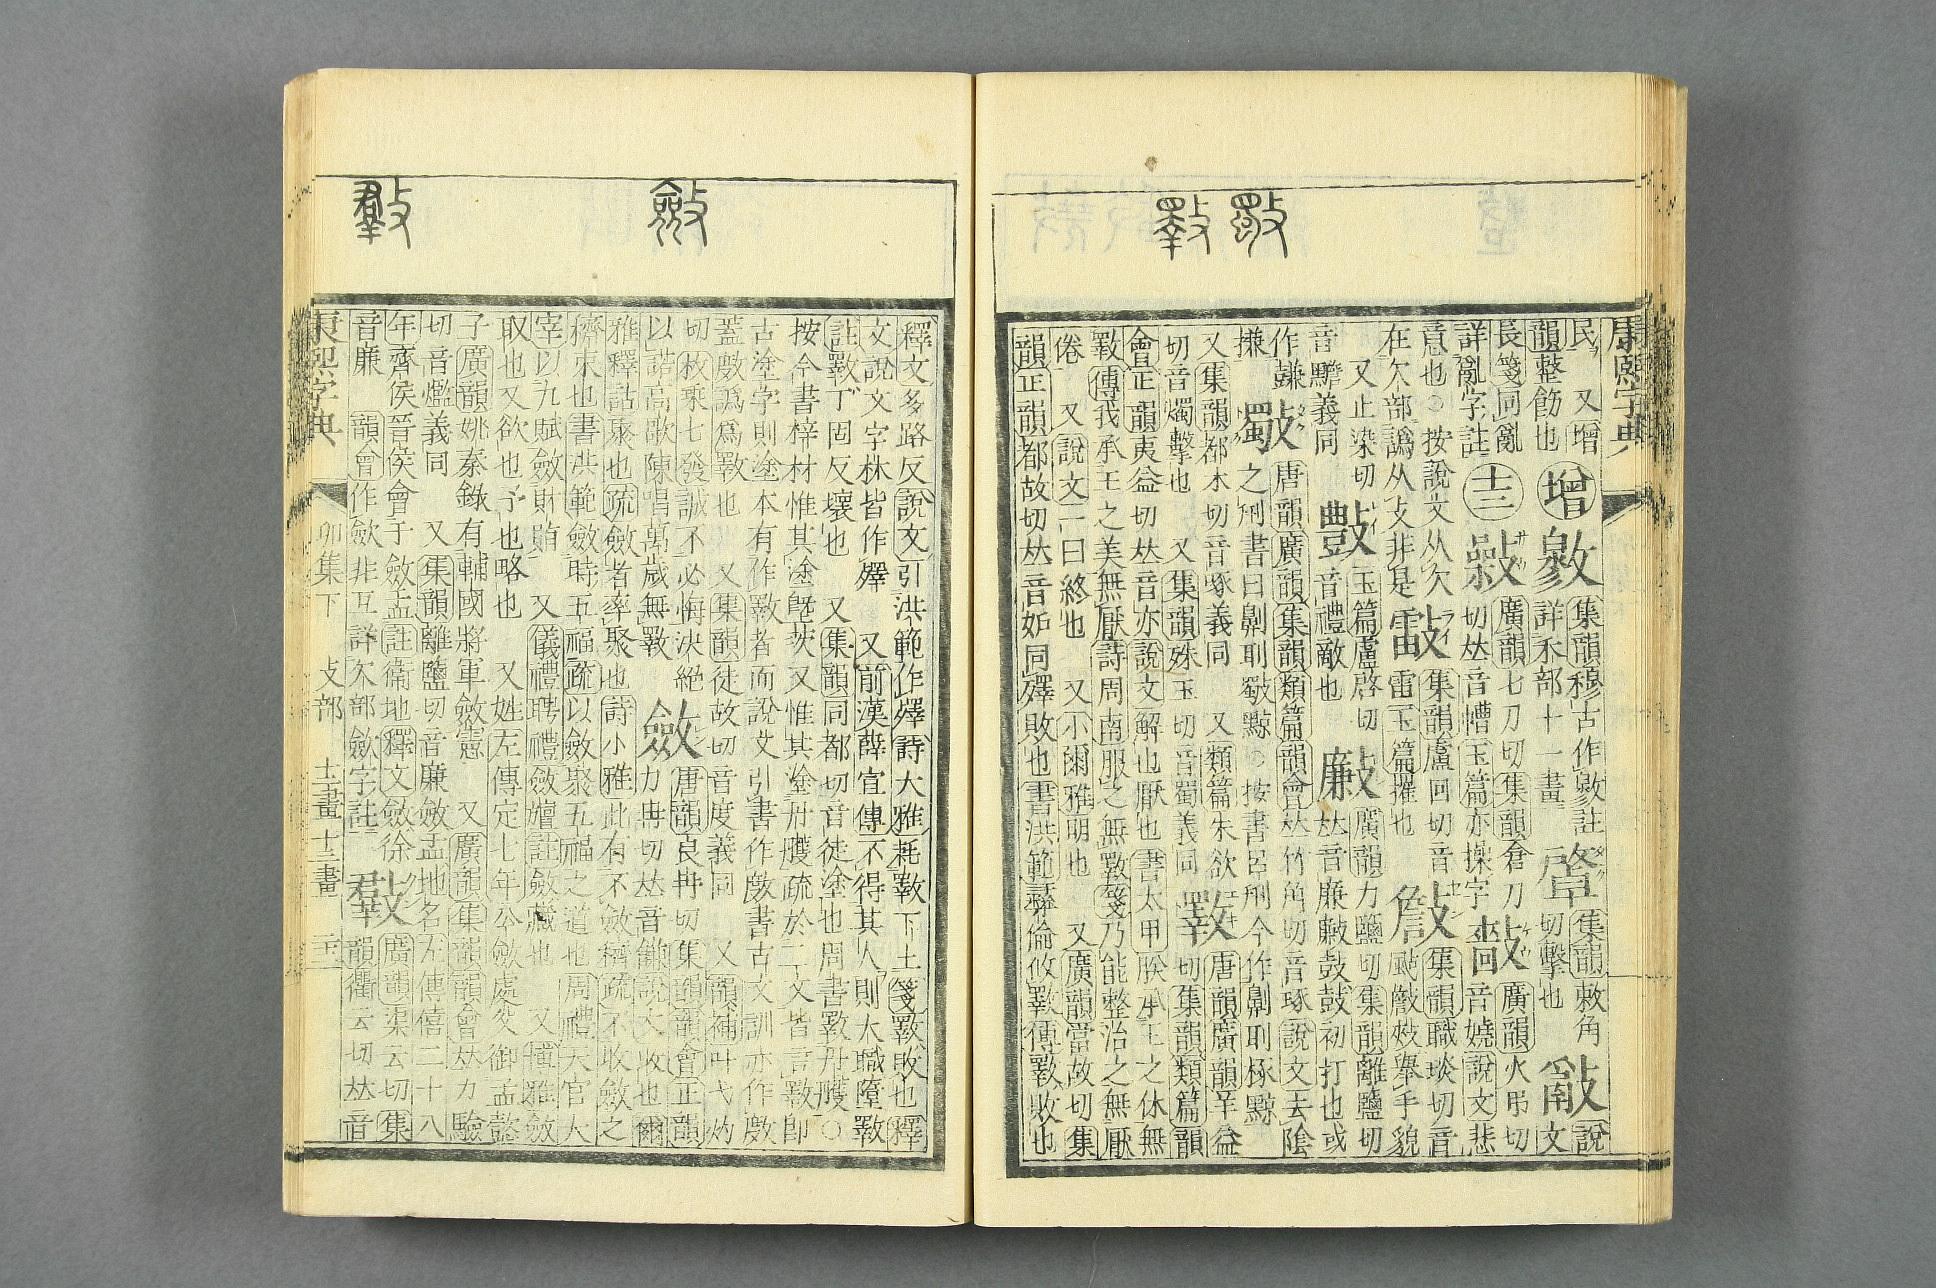 斀 斁
康熙字典
民 又增
韻整飭也
增 敹
集韻穆古作敹註
詳禾部十一畫
集韻敕角
切擊也
說
文
長箋同亂
詳亂字註
十三
廣韻七刀切集韻倉刀
切𠀤音慒玉篇亦操字
廣韻火弔切
音嬈說文悲
意也○按說文从欠
在欠部譌从攴非是
集韻盧回切音
雷玉篇
集韻職琰切音
颭 舉手貌
又止染切
音黵義同
玉篇盧啓切
音禮敵也
廣韻力鹽切集韻離鹽切
𠀤音廉 鼓鼓初打也或
斀
唐韻廣韻集韻類篇韻會𠀤竹角切音琢說文去陰
之𠛬書曰劓刵斀黥○按書呂𠛬今作劓刵椓黥
又集韻都木切音啄義同 又類篇朱欲
切音燭擊也 又集韻殊玉切音蜀義同
斁
唐韻廣韻羊益
切集韻類篇韻
會正韻夷益切𠀤音亦說文解也厭也書太甲朕承王之休無
斁傳我承王之美無厭詩周南服之無斁箋乃能整治之無厭
倦 又說文一曰終也 又小爾雅明也 又廣韻當故切集
韻正韻都故切𠀤音妒同殬敗也書洪範彝倫攸斁傳斁敗也
斂
釋文多路反說文引洪範作殬詩大雅耗斁下土箋斁敗也釋
文說文字林皆作殬 又前漢薛宣傳不得其人則大職墮斁
註斁丁固反壞也 又集韻同都切音徒塗也周書斁丹雘○
按今書梓材惟其塗墍茨又惟其塗丹雘疏於二文皆言斁卽
古塗字則塗本有作斁者而說文引書作𢾖書古文訓亦作𢾖
蓋𢾖譌爲斁也 又集韻徒故切音度義同 又韻補叶弋灼
切枚乗七發誠不必悔決絶
以諾高歌陳唱萬歲無斁
斂
唐韻良冉切集韻韻會正韻
力冉切𠀤音 說文收也爾
雅釋詁聚也疏斂者率聚也詩小雅此有不斂穧疏不收斂之
穧束也書洪範斂時五福疏以斂聚五福之道也周禮天官大
宰以九賦斂財賄 又儀禮聘禮斂 註斂藏也 又博雅斂
取也又欲也予也略也 又姓左傳定七年公斂處父御孟懿
子廣韻姚秦錄有輔國將軍斂憲 又廣韻集韻韻會𠀤力驗
切音爁義同 又集韻離鹽切音廉斂孟地名左傳僖二十八
年齊侯晉侯會于斂盂註衛地釋文斂徐
音廉 韻會作歛非互詳欠部歛字註
廣韻渠云切集
韻衢云切𠀤音
康熙字典 卯集下 攴部